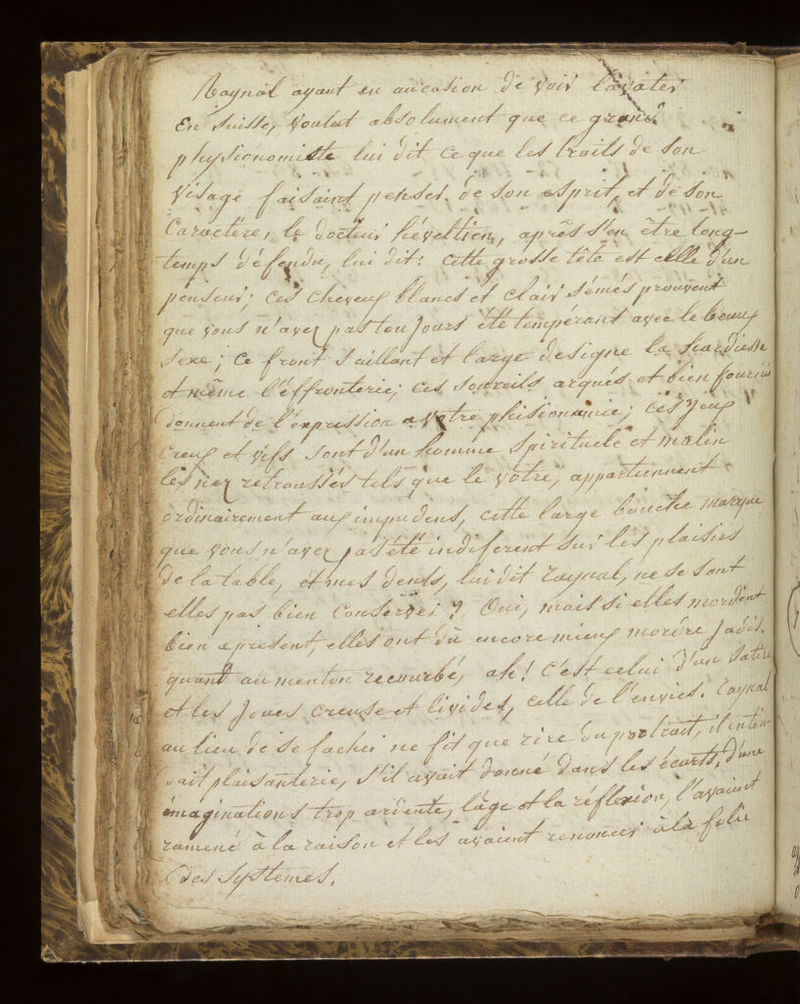 Raynal ayant eu aucasion de voir Lavater
en Suisse, voulut absolument que ce grand
physionomiste lui dit ce que les traits de son
visage faisaint penser de son esprit, et de son
Caractére, le docteur hévéltien, aprês s'en être long-
temps défendu, lui dit: cette grosse tête est celle d'un
penseur; Ces cheveux blancs et clair sémés prouvent
que vous n'avez pas toujours été tempérant avec le beau
sexe; Ce front saillant et large designe la hardiesse
et même l'éffronterie; ces sourcils arqués et bien fournis
donnent de l'expression a votre phisionnimie; ces yeux
creux et vifs sont d'un homme spirituele et malin
les nez retroussés tels que le vôtre, appartiennent
ordinairement aux impudens, cette large bouche marque
que vous n'avez pas été indiferent sur les plaisirs
de la table, et mes dents, lui dit raynal, ne se sont
elles pas bien Conservei ? Oui, mais si elles mordent
bien apresent, elles ont dû encore mieux mordre jadis.
quant au menton recourbé, ah! C'est celui d'un Satire
et les joues creuse et livides, celle de l'envies. raynal
au lieu de se facher ne fit que rire du protrait,
plaisanterie, s'il avait donné dans les écarts, d'une
imaginations trop ardente, l'âge et la réflexion, l'avaint
ramené à la raison et les avaient renoncer à la folie
des Systemes.